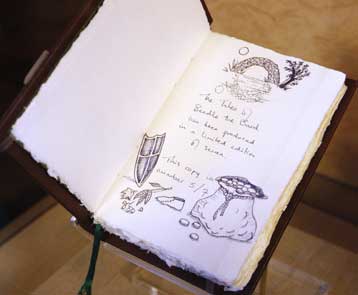 The Tales of
Beedle the Bard
has been produced
in a limited edition
of seven.
This copy is
number 5/7